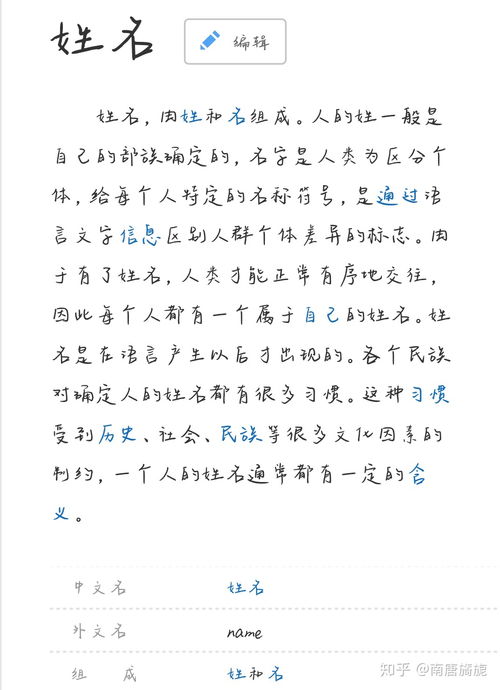 姓名 编辑
姓名，由姓和名组成。人的姓一般是
自己的部族确定的，名字是人类为区分个
体，给每个人特定的名称符号，是通过语
言文字信息区别人群个体差异的标志。由
于有了姓名，人类才能正常有序地交往，
因此每个人都有一个属于自己的姓名。姓
名是在语言产生以后才出现的。各个民族
对确定人的姓名都有很多习惯。这种习惯
受到历史、社会、民族等很多文化因素的
制约，一个人的姓名通常都有一定的含
义。
中文名 姓名
外文名 name
组 成 姓和名
知乎 @南唐旖旎